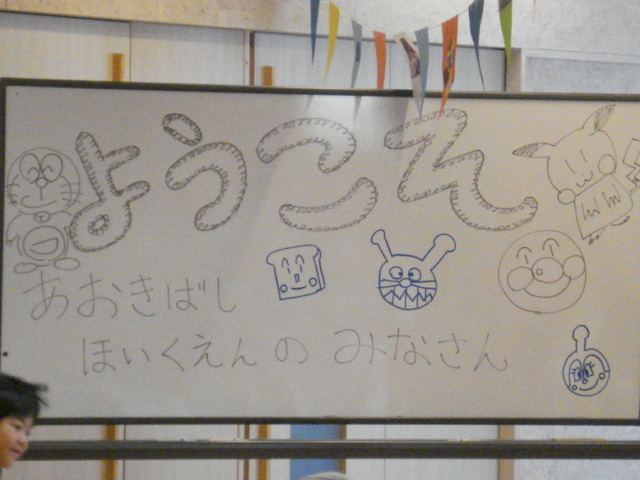 ようこそ
あおきばし
ほいくえんの みなさん